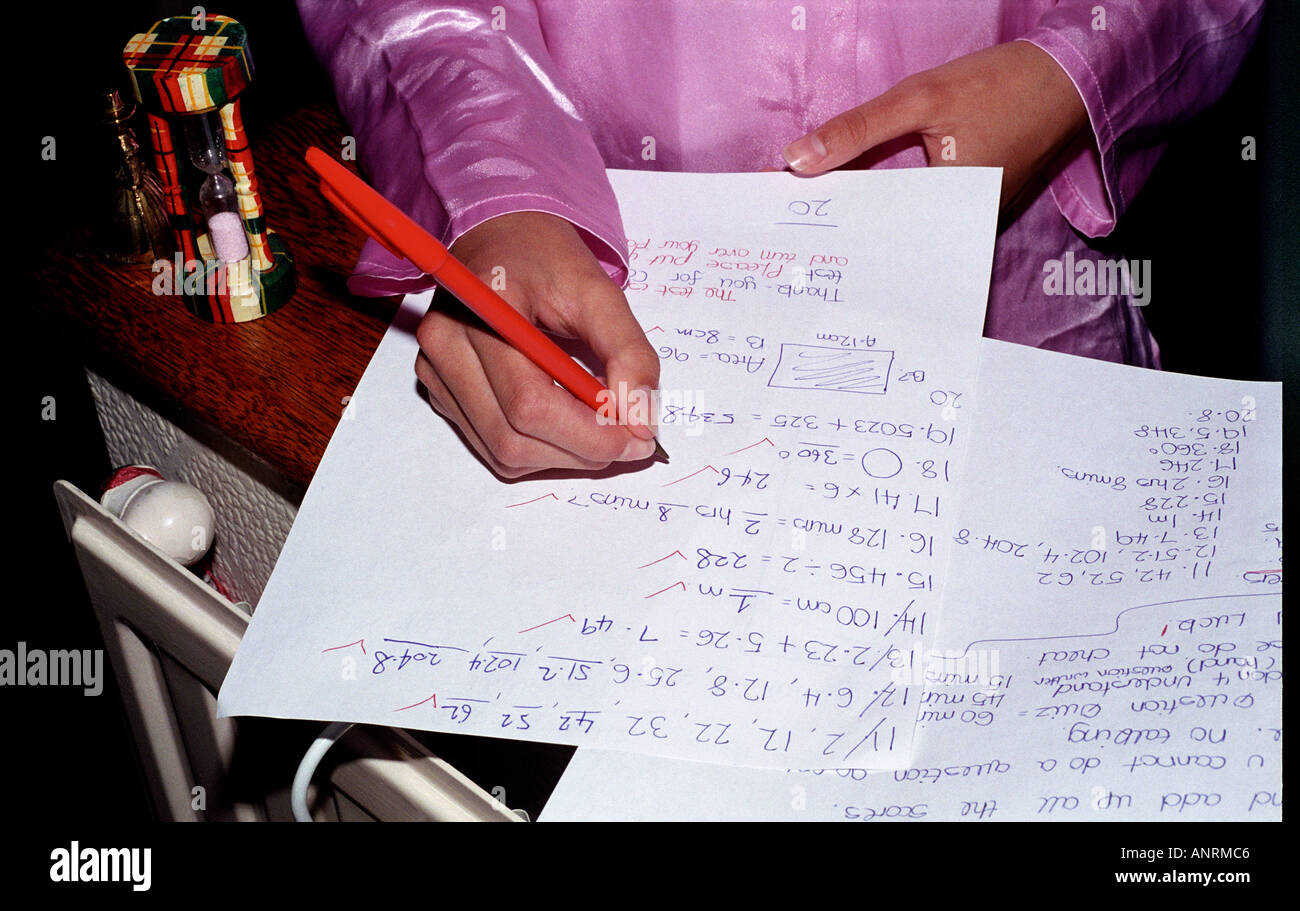 11/ 2, 12, 22, 32, 42, 52, 62
12/ 6.4, 12.8, 25.6, 51.2, 102.4, 204.8
13/ 2.23 + 5.26 = 7.49
14/ 100cm = 1 m
15. 456 ÷ 2 = 228
16. 128 mins = 2 hrs 8 mins?
17. 41 x 6 = 246
18. = 360°
19. 5023 + 325 = 534.8
20 B? A-12cm Area = 96 B = 8cm
The test
Thank-you for
test Please put
and turn over your
20
add up all the scores.
cannot do a question
no talking.
Question Quiz = 60 min
don't understand 45 min
(hand) question writer 15 mins
do not cheat.
Luck!
11. 42, 52, 62
12. 51.2, 102.4, 204.8
13. 7.49
14. 1m
15. 228
16. 2 hrs 8 mins.
17. 246
18. 360°
19. 5,348
20. 8.
alamy
Image ID: ANRMC6
www.alamy.com